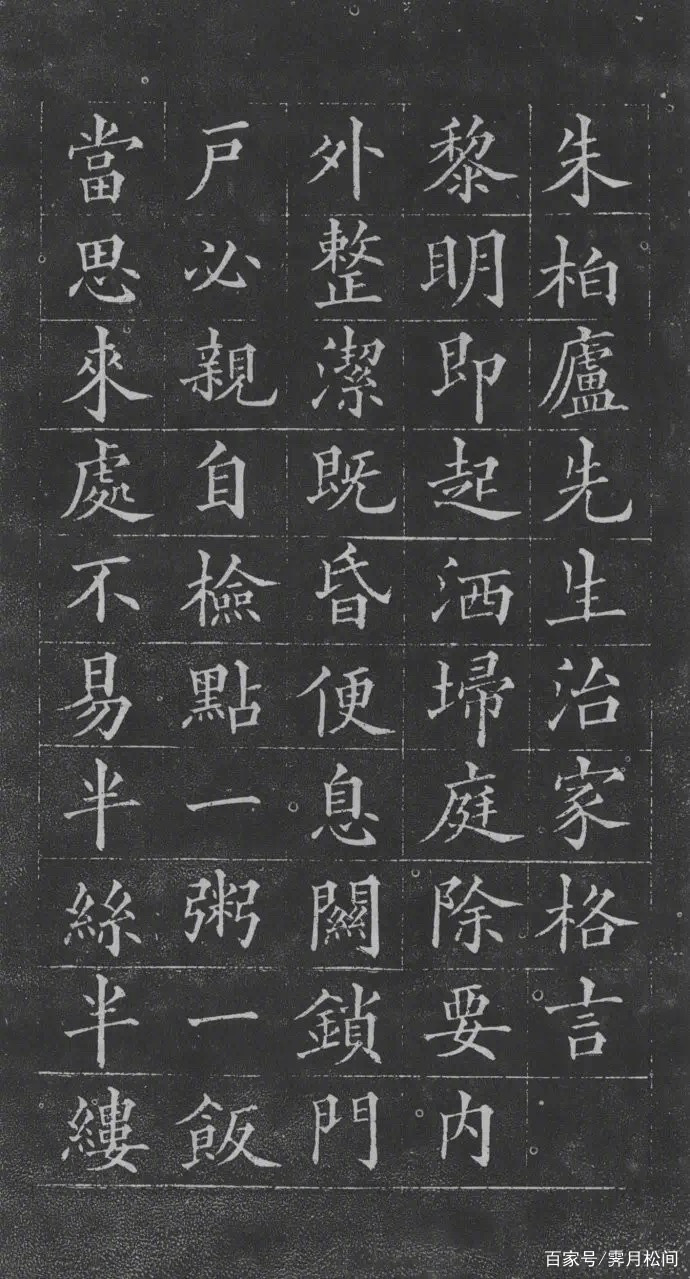 朱柏廬先生治家格言
黎明即起洒埽庭除要内
外整潔既昏便息關鎖門
戶必親自檢點一粥一飯
當思來處不易半絲半縷
百家号/霁月松间